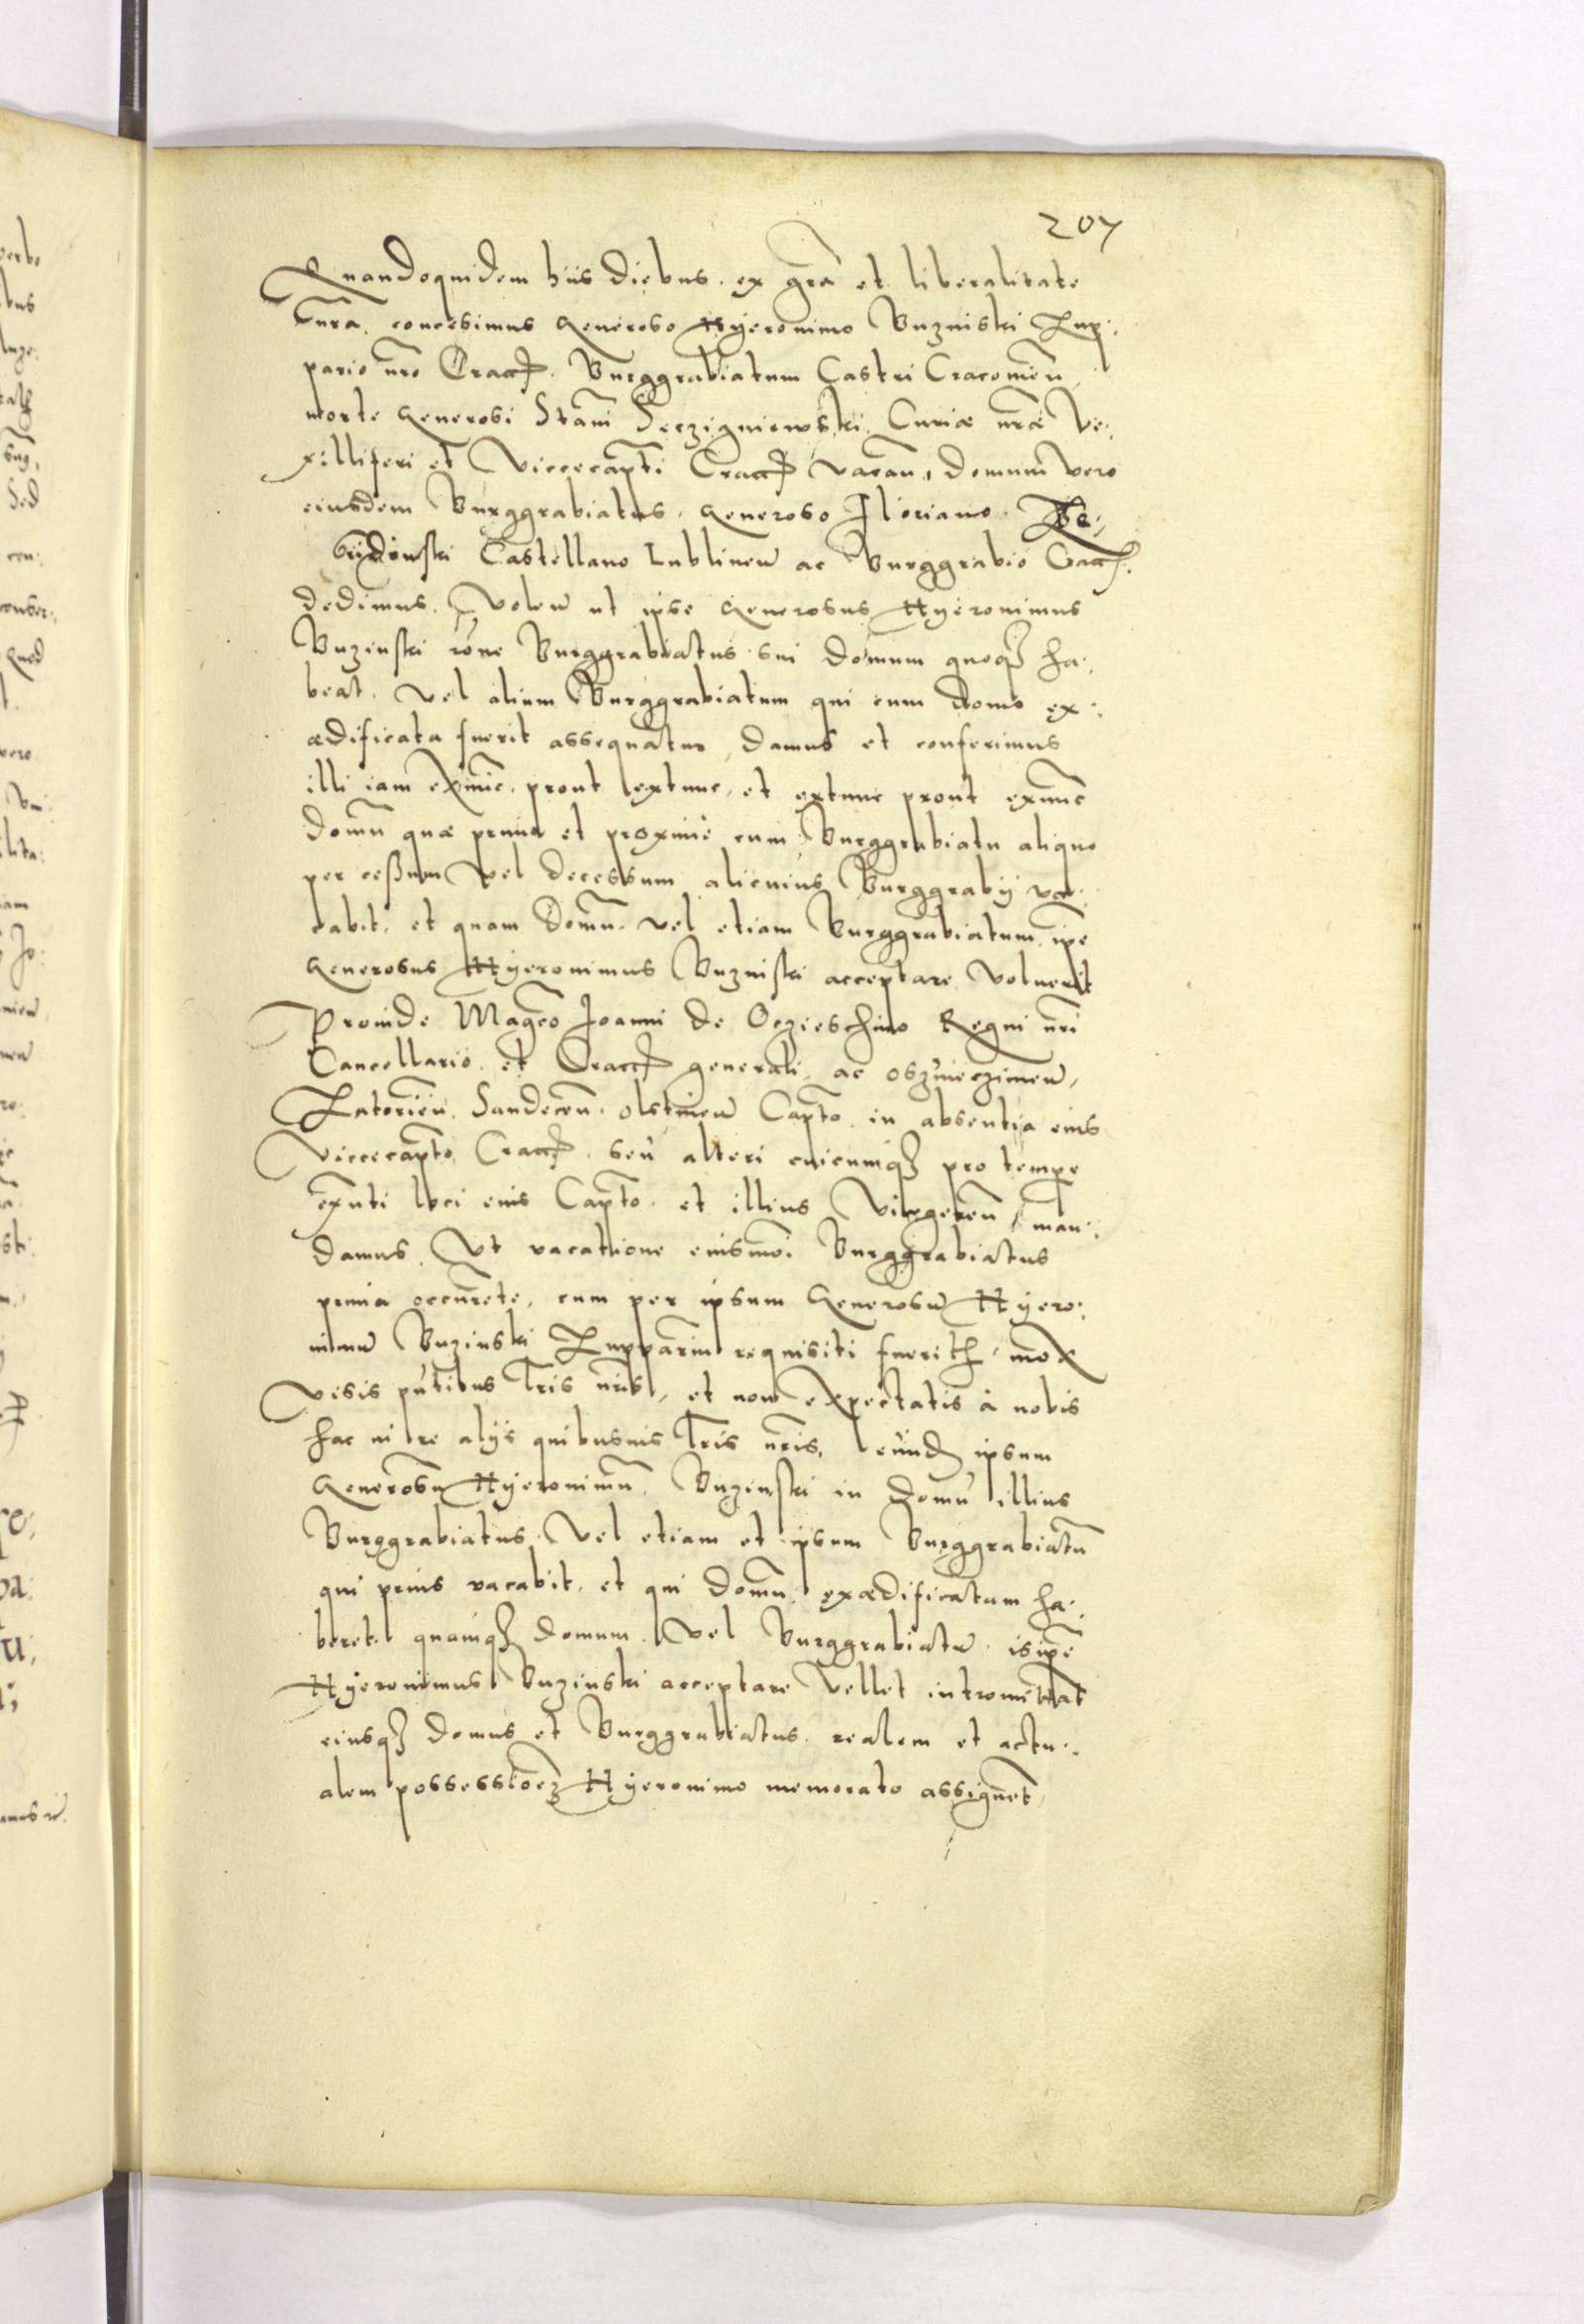 207
Quandoquidem hiis diebus ex gra͞ et liberalitate
nr͞a concesimus Generoso Hyeronimo Buzniski Zup:
pario nr͞o Crac͞. Burggrabiatum Castri Cracovien͞
morte Generosi Stani͞ Seczigniewski Curiæ nr͞æ Ve:
xilliferi et Vicecapt͞i Crac͞ vacan͞, domum vero
eiusdem Burggrabiatus Generoso Floriano Ze:
brzidowski Castellano Lublinen͞ ac Burggrabio Crac͞.
dedimus. Volen͞ ut ipse Generosus Hyeronimus
Buzinski ro͞ne Burggrabiatus sui domum quoqʒ ha:
beat, vel alium Burggrabiatum qui cum domo ex:
ædificata fuerit assequatur, damus et conferimus
illi iam exnu͞c prout extunc, et extunc prout exnu͞c
domu͞ quæ primu͞ et proxime cum Burggrabiatu aliquo
per ceßum vel decessum alicuius Burggrabij va:
cabit, et quam domu͞ vel etiam Burggrabiatum ip͞e
Generosus Hyeronimus Buzniski acceptare voluerit
Proinde Magco͞ Joanni de Oczieschino Regni nr͞i
Cancellario et Crac͞ generali ac Oszwieczimen͞,
Zatorien͞. Sandecen͞. Olstinen͞ Capt͞o in absentia eius
Vicecapt͞o Crac͞. seu alteri cuicumqʒ pro tempe͞
exn͞ti loci eius Capt͞o et illius Vilegeren͞ man:
damus. Ut vacatione eiusmo͞i Burggrabiatus
prima occurre͞te, cum per ipsum Generosu͞ Hyero:
nimu͞ Buzinski Zupparium requisiti fuerit͞, mox
visis pn͞tibus lr͞is nr͞is, et non expectatis à nobis
hac in re alijs quibusuis lr͞is nr͞is, eund͞ ipsum
Generosu͞ Hyeronimu͞ Buzinski in domu͞ illius
Burggrabiatus vel etiam et ipsum Burggrabiatu͞
qui prius vacabit, et qui domu͞ exædificatam ha:
beret quamqʒ domum vel Burggrabiatu͞ is ip͞e
Hyeronimus Buzinski acceptare vellet intromittat
eiusqʒ domus et Burggrabiatus realem et actu:
alem possessioe͞z Hyeronimo memorato assignet